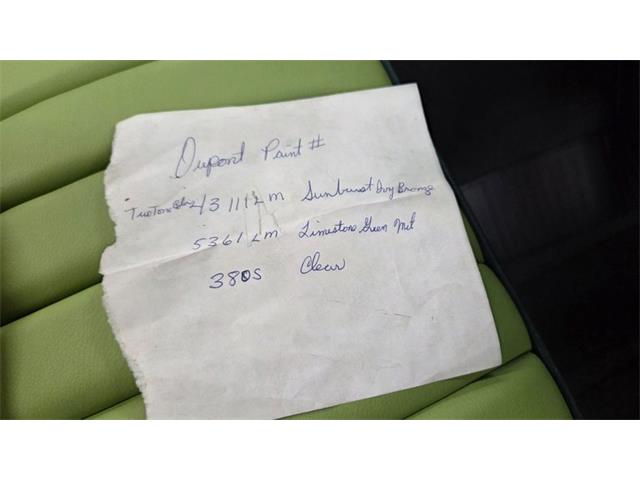 Dupont Paint #
Two Tone 43111 LM Sunburst Ivy Bronze
5361 LM Limestone Green Met
380S Clear